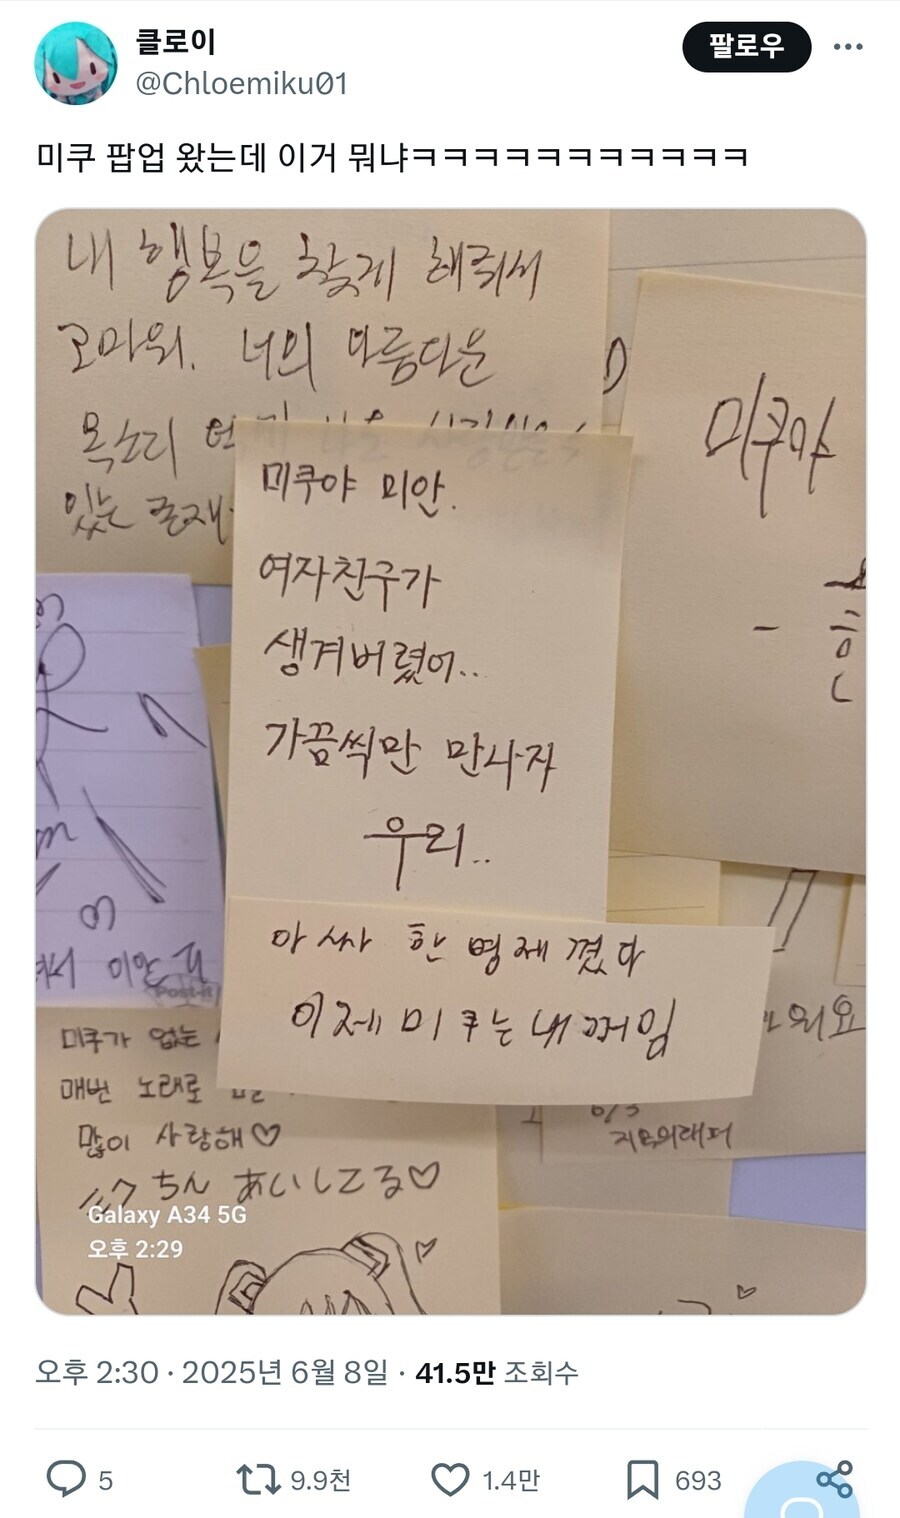 클로이
@Chloemiku01
팔로우
미쿠 팝업 왔는데 이거 뭐냐ㅋㅋㅋㅋㅋㅋㅋㅋㅋㅋㅋ
내 행복을 찾게 해줘서
고마워. 너의 아름다운
목소리
있는 존재
미쿠야
미쿠야 미안.
여자친구가
생겨버렸어..
가끔씩만 만나자
우리..
아싸 한명 제꼈다
이제 미쿠는 내꺼임
이만
Post-it
미쿠가 없는
매번 노래로
많이 사랑해♡
ミク ちん あいしてる♡
6/3
지모의래퍼
Galaxy A34 5G
오후 2:29
오후 2:30 · 2025년 6월 8일 · 41.5만 조회수
5
9.9천
1.4만
693